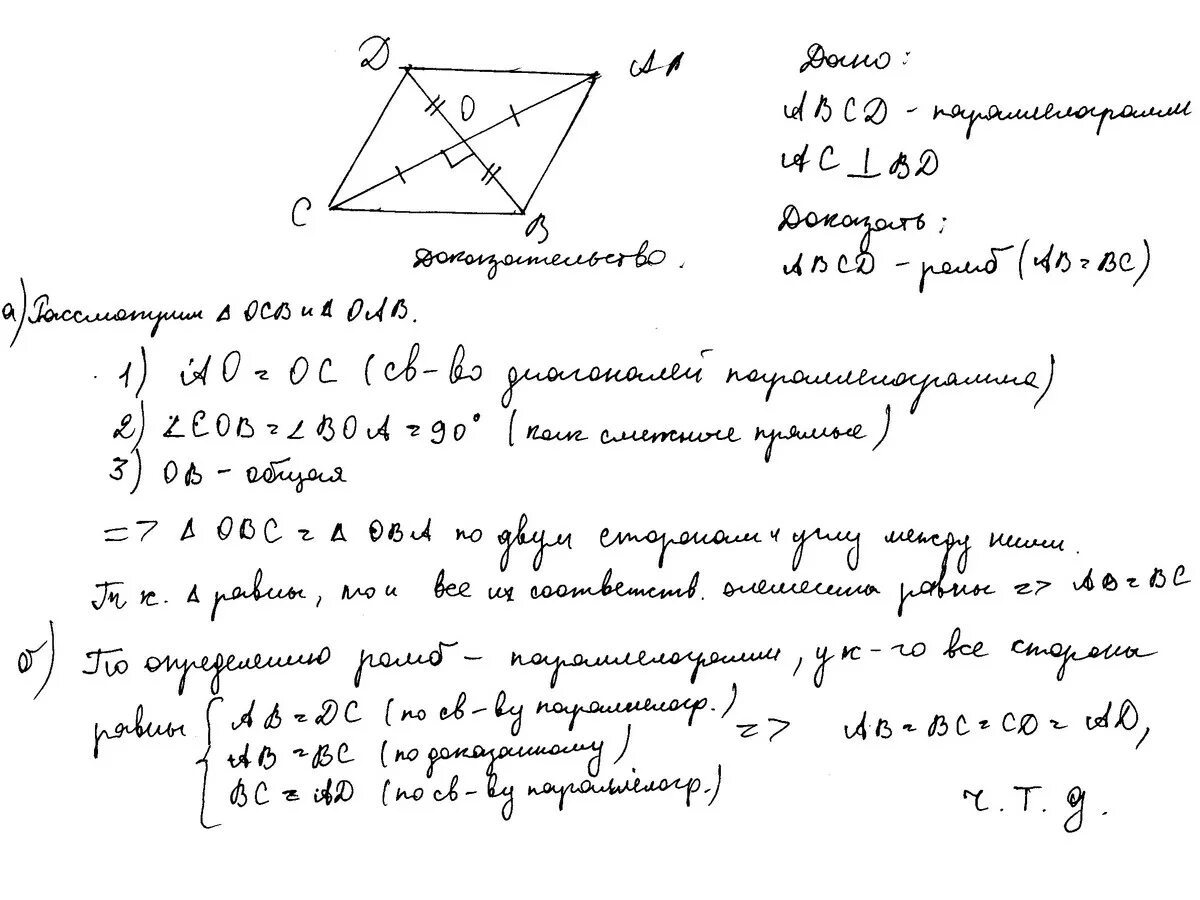 D
A
O
C
B
Дано:
ABCD - параллелограмм
AC ⊥ BD
Доказать:
ABCD - ромб (AB = BC)
Доказательство.
а) Рассмотрим Δ OCB и Δ OAB.
1) AO = OC (св-во диагоналей параллелограмма)
2) ∠COB = ∠BOA = 90° (как смежные прямые)
3) OB - общая
=> Δ OBC = Δ OBA по двум сторонам и углу между ними.
Т.к. Δ равны, то и все их соответств. элементы равны => AB = BC
б) По определению ромб - параллелограмм, у к-го все стороны
равны { AB = DC (по св-ву параллелогр.)
AB = BC (по доказанному)
BC = AD (по св-ву параллелогр.)
=> AB = BC = CD = AD,
ч.т.д.